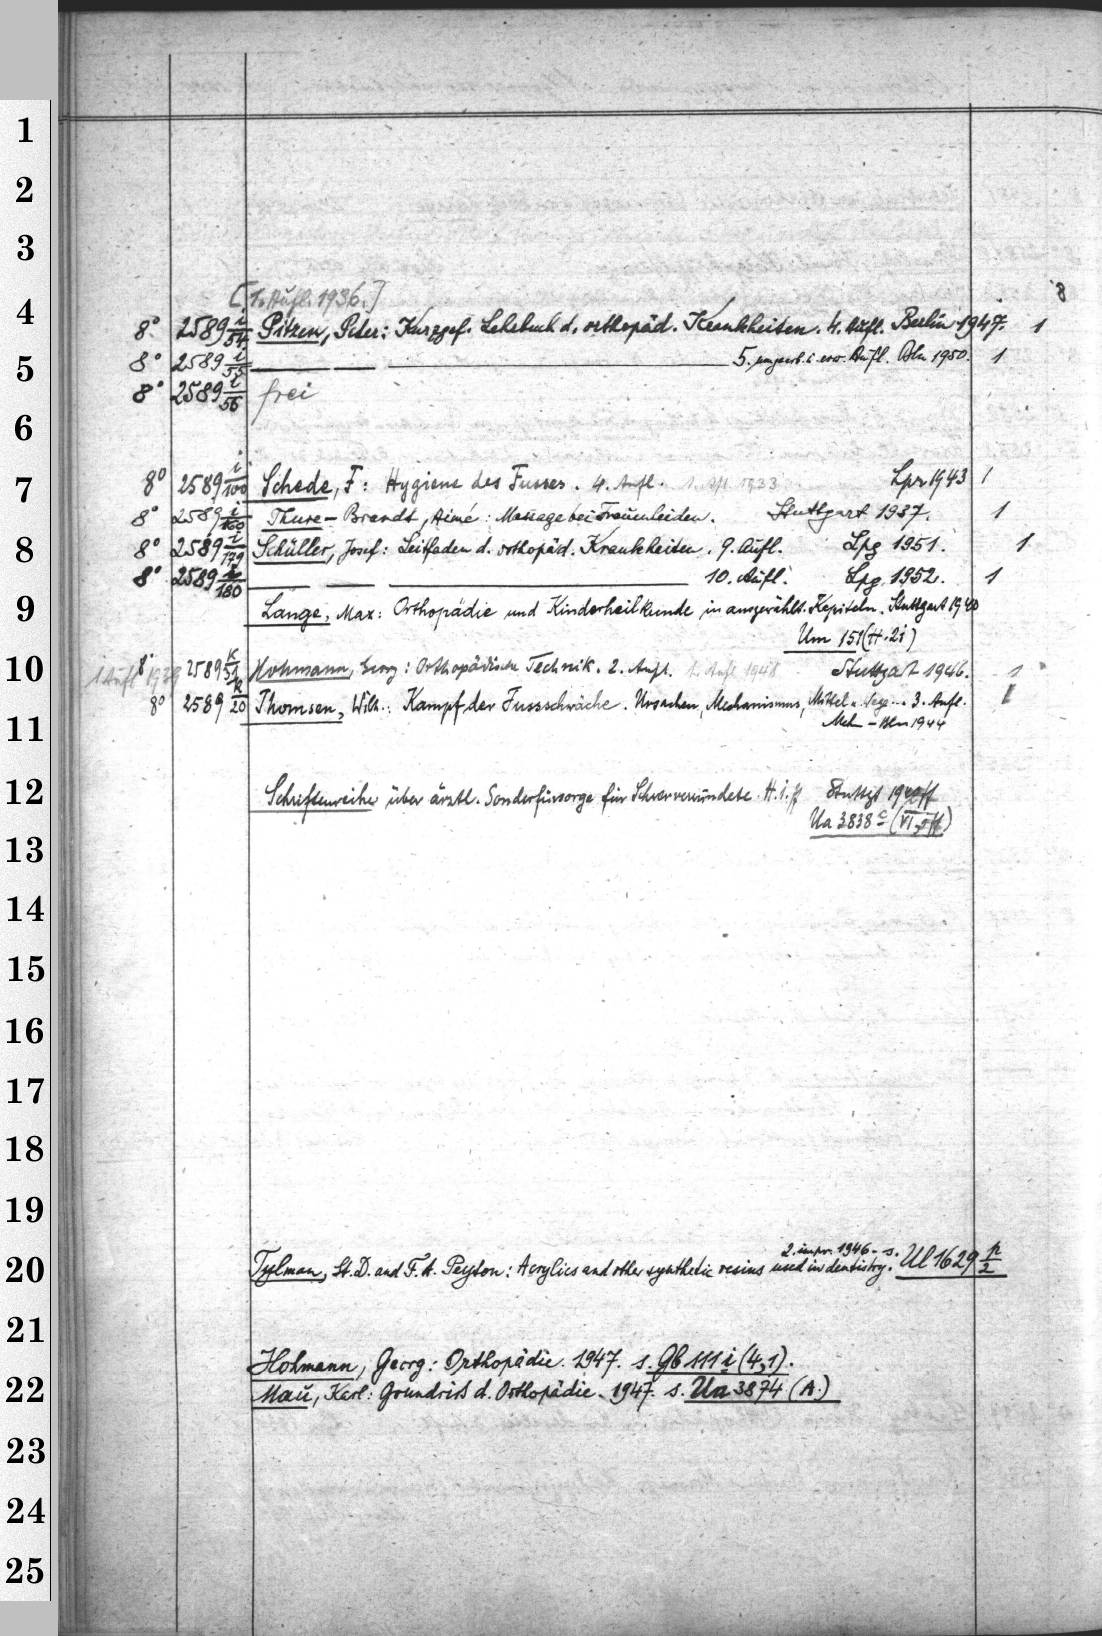 1
2
3
4
5
6
7
8
9
10
11
12
13
14
15
16
17
18
19
20
21
22
23
24
25
8
[1. Aufl. 1936.]
8° 2589 i/54 Pitzen, Peter: Kurzgef. Lehrbuch d. orthopäd. Krankheiten. 4. Aufl. Berlin 1947. 1
8° 2589 i/55 5. umgearb. u. erw. Aufl. Bln 1950. 1
8° 2589 i/56 frei
8° 2589 i/100 Schede, F: Hygiene des Fusses. 4. Aufl. 1. Afl 1933 Lpz 1943 1
8° 2589 i/160 Thure-Brandt, Aimé: Massage bei Frauenleiden. Stuttgart 1937. 1
8° 2589 i/179 Schüller, Josef: Leitfaden d. orthopäd. Krankheiten. 9. Aufl. Lpg 1951. 1
8° 2589 i/180 10. Aufl. Lpg. 1952. 1
Lange, Max: Orthopädie und Kinderheilkunde in ausgewählt. Kapiteln. Stuttgart 1940
Um 151 (H. 2i)
8° 2589 k/51 Hohmann, Georg: Orthopädische Technik. 2. Aufl. 1. Aufl 1948 Stuttgart 1946. 1
1 Aufl 1939
8° 2589 k/20 Thomsen, Wilh.: Kampf der Fussschwäche. Ursachen, Mechanismus, Mittel u. Wege... 3. Aufl. 1
Mch - Bln 1944
Schriftenreihe über ärztl. Sonderfürsorge für Schwerverwundete H. 1. ff Stuttgt 1940ff
Ua 3838 c (VI, off)
2. impr. 1946 - s.
Tylman, St. D. and F. A. Peyton: Acrylics and other synthetic resins used in dentistry. Ul 1629 p/2
Hohmann, Georg: Orthopädie. 1947. s. Gb 111 i (4,1).
Mau, Karl: Grundriß d. Orthopädie. 1947. s. Ua 3874 (A.)